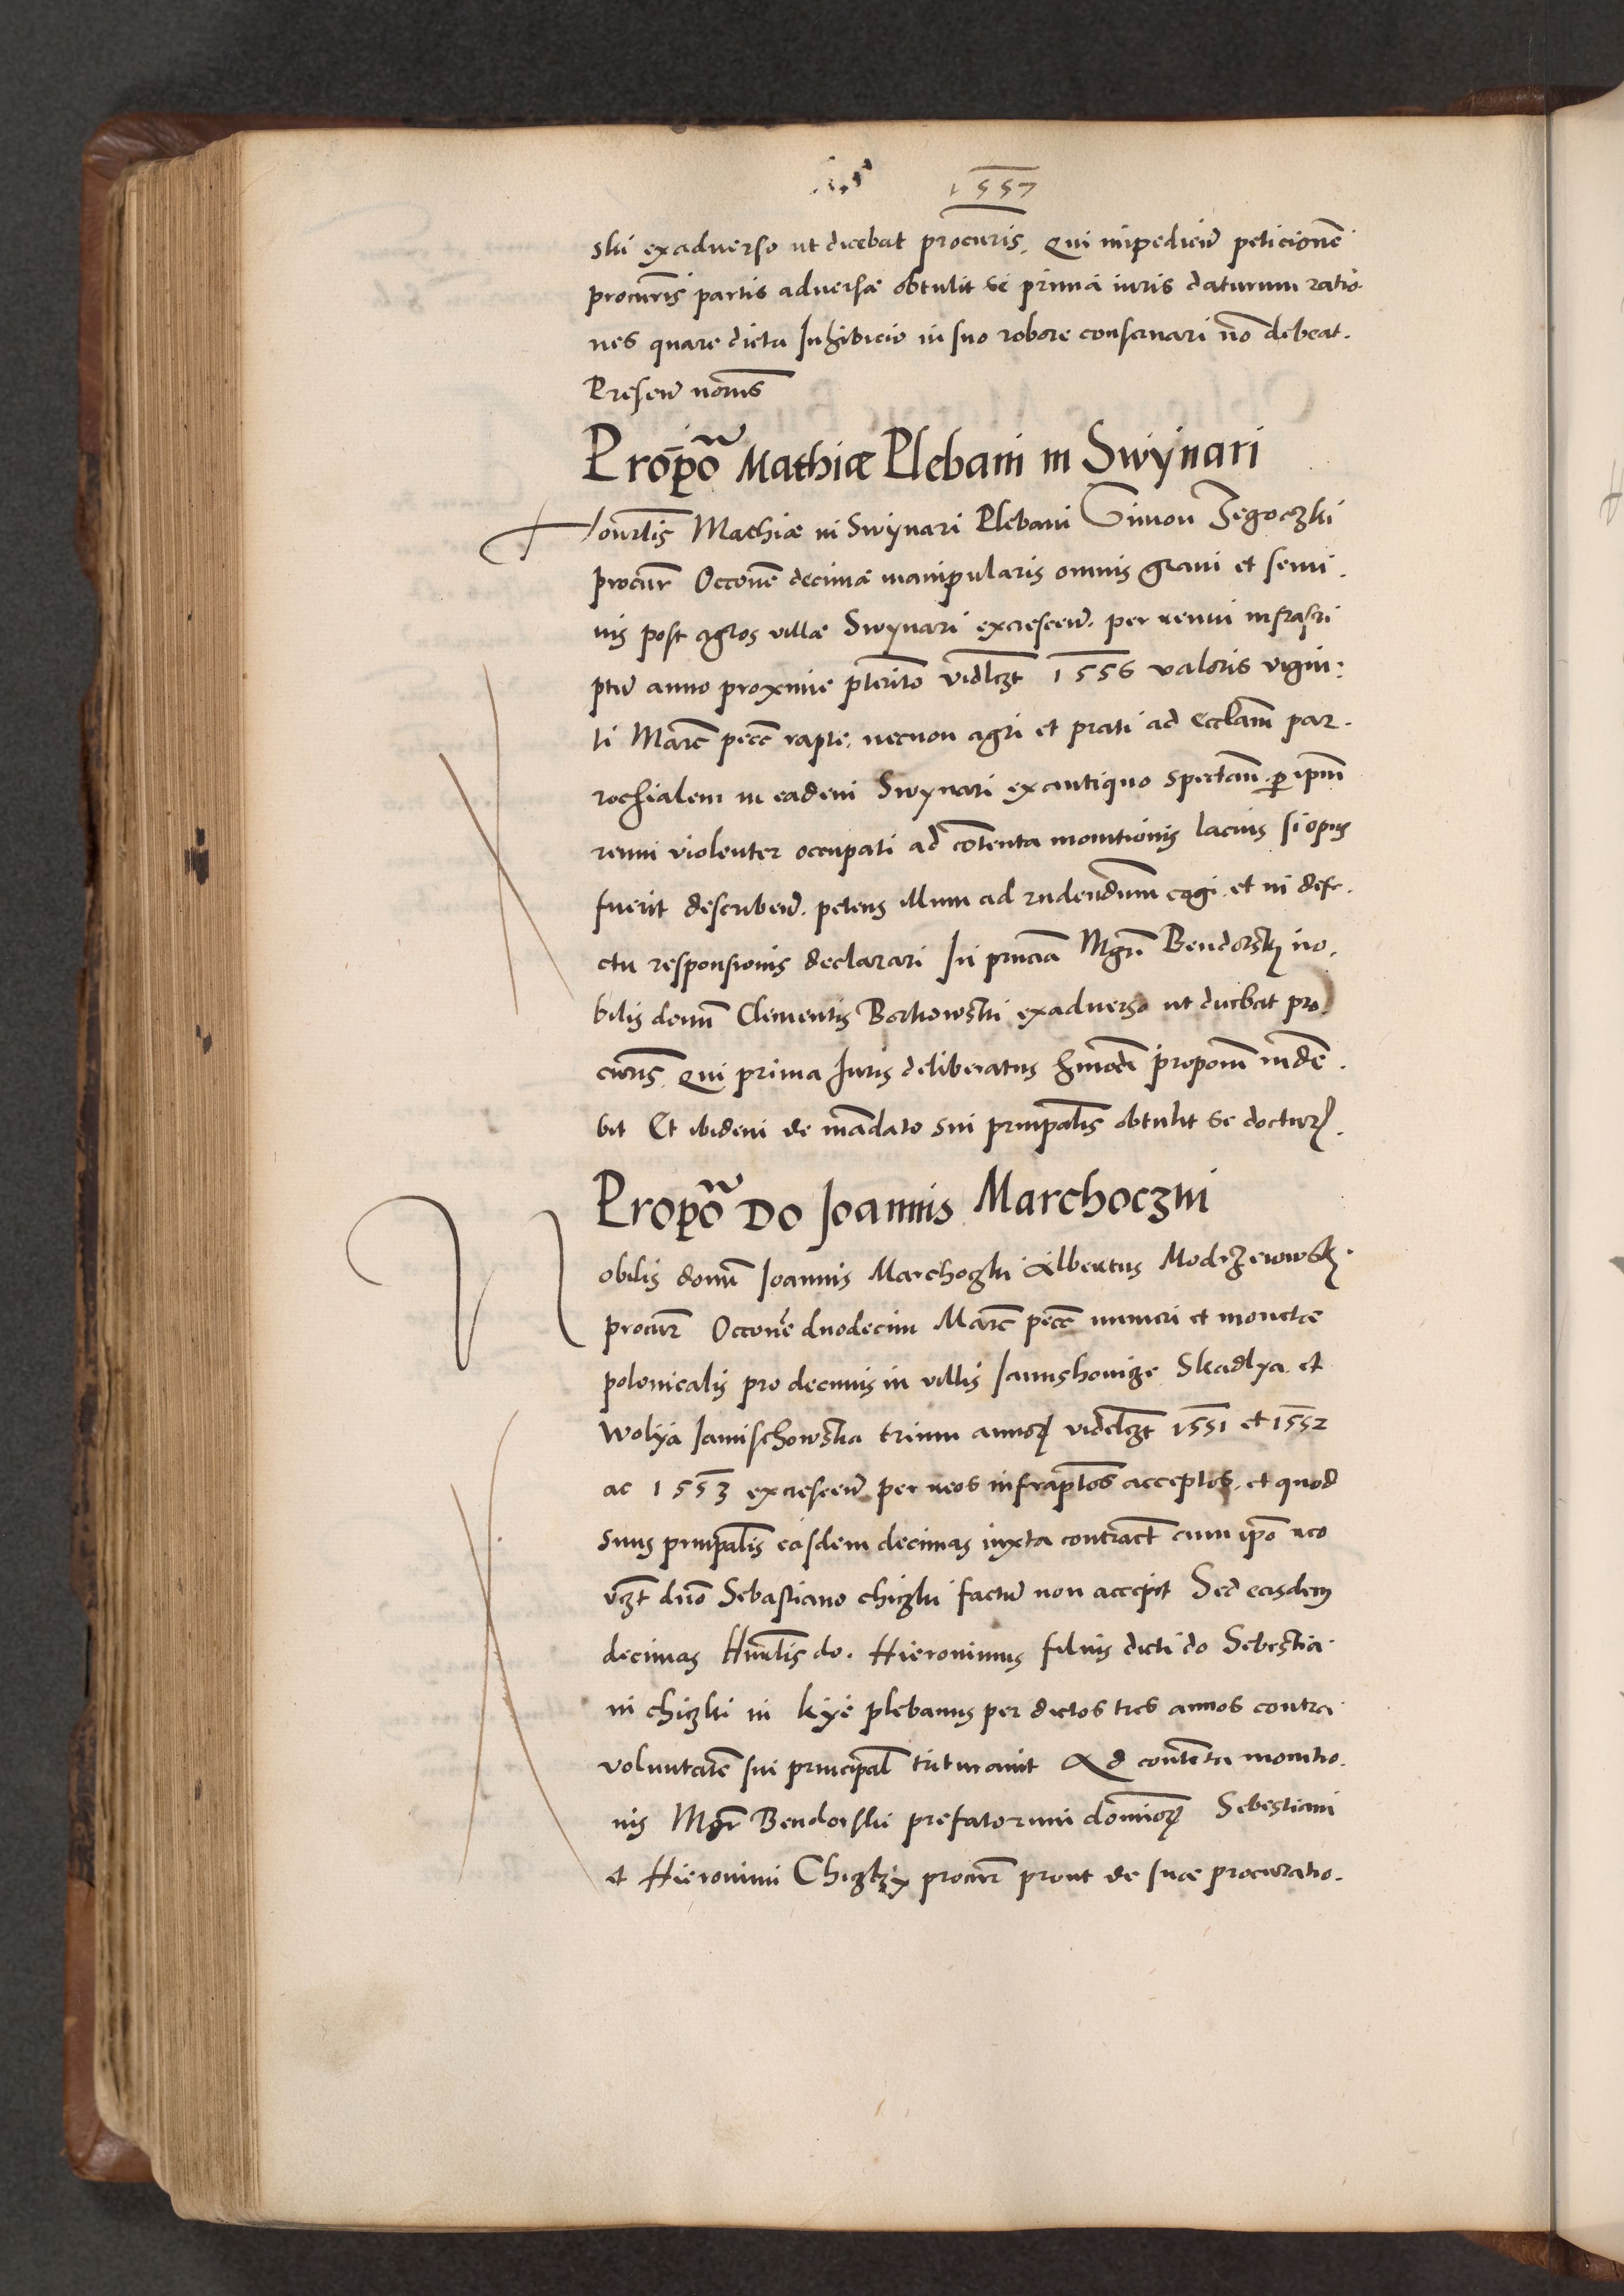 1557
ski exadverso ut dicebat procuris. Qui impediend peticionē
procuris partis adversæ obtulit se prima iuris daturum ratio-
nes quare dicta Inhibicio in suo robore conservari nō debeat.
Presen noriis
Propō Mathiæ Plebani in Swÿnari
Honrlis Mathiæ in Swÿnari Plebani Simon Zegoczki
procur Occonē decimæ manipularis omnis grani et semi-
nis post agros villæ Swÿnari excrescen. per reum infrascri
ptu anno proxime pterito vidlczt 1556 valoris vigin-
ti Marc pecc raptæ, necnon agri et prati ad Ecclam par-
rochialem in eadem Swÿnari exantiquo spectan. p ipm
reum violenter occupati ad cotenta monitionis lacius si opus
fuerit describen. petens illum ad rndendum cogi. et in defe-
ctu responsionis declarari In pnciā Mgri Bendorsky no-
bilis domi Clementis Borkowski exadverso ut dicebat pro-
curis Qui prima Iuris deliberatus hmodi proponi rndē-
bit Et ibidem de mādato sui prinpalis obtulit se doctur.
Propō Do Joannis Marchoczki
Nobilis domi Joannis Marchoczki Albertus Modrzewowsk.
procur Occonē duodecim Marc pecc numeri et monetæ
polonicalis pro decimis in villis Janushovicze Skadlya et
Wolÿa Janischowska trium annor videlczt 1551 et 1552
ac 1553 excrescen per reos infraptos acceptos. et quod
suus prinpalis easdem decimas iuxta contract cum ipo reo
vczt dno Sebastiano chiczki factu non accepit Sed easdem
decimas Hnrlis do. Hieronimus filius dicti do Sebestia-
ni chiczki in Kÿe plebanus per dictos tres annos contra
voluntatē sui principal triturauit Ad contēta monitio-
nis Mgr Bendorski prefatorum dominor Sebestiani
et Hieronimi procur prout de suæ procuratio-